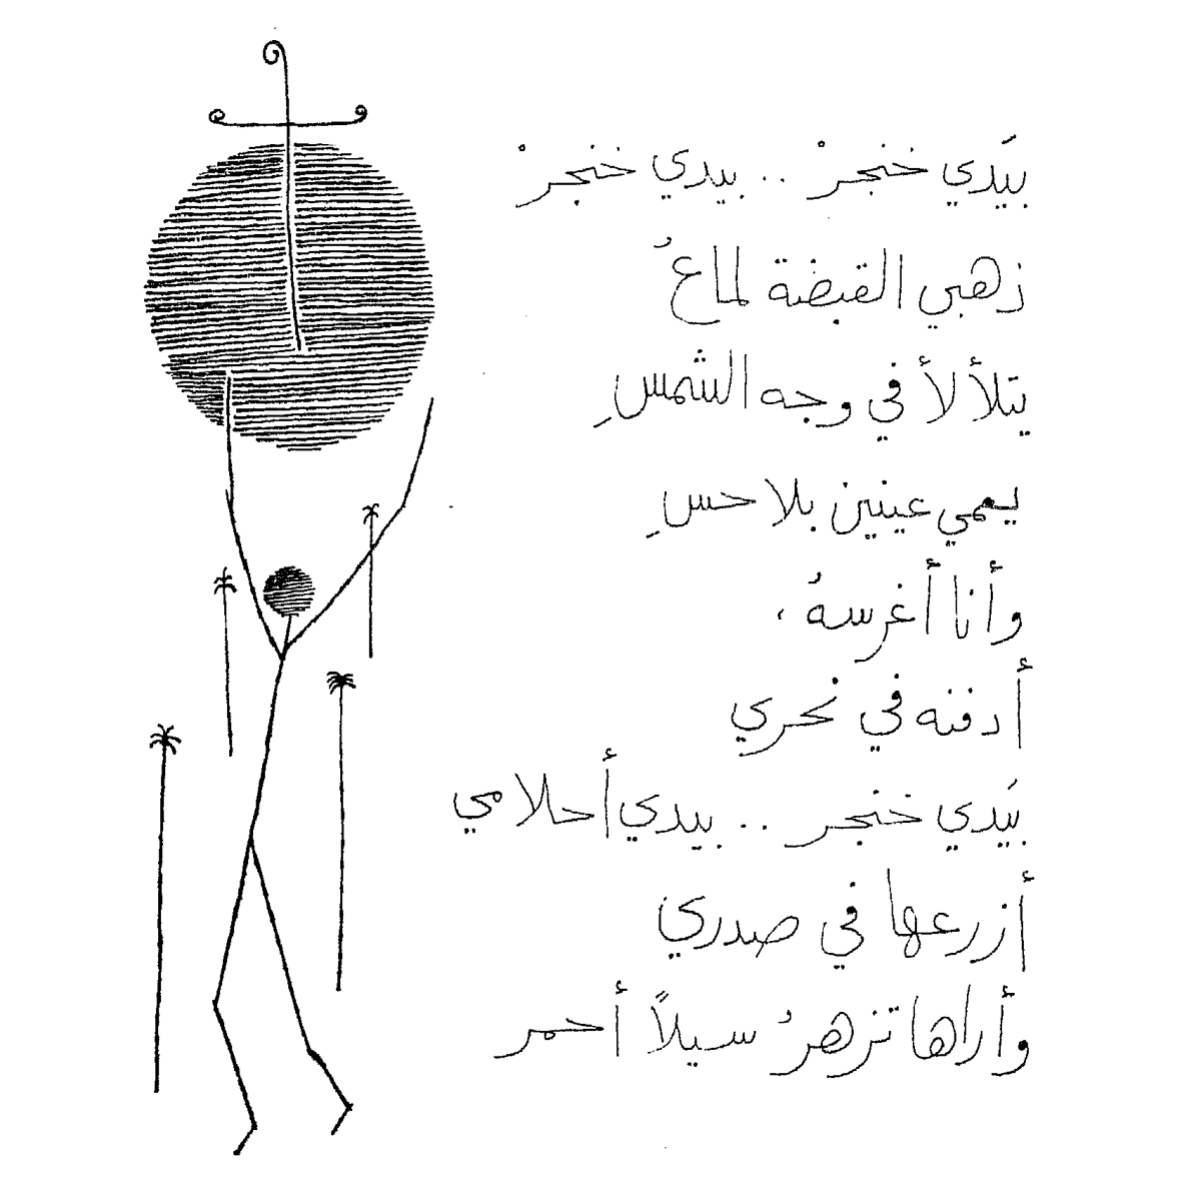 بيَدي خنجرْ .. بيدي خنجرْ
ذهبي القبضة لماعُ
يتلألأ في وجه الشمسِ
يعمي عينين بلا حسِ
وأنا أغرسهُ ،
أدفنه في نحري
بيَدي خنجر .. بيدي أحلامي
أزرعها في صدري
وأراها تزهرُ سيلاً أحمر